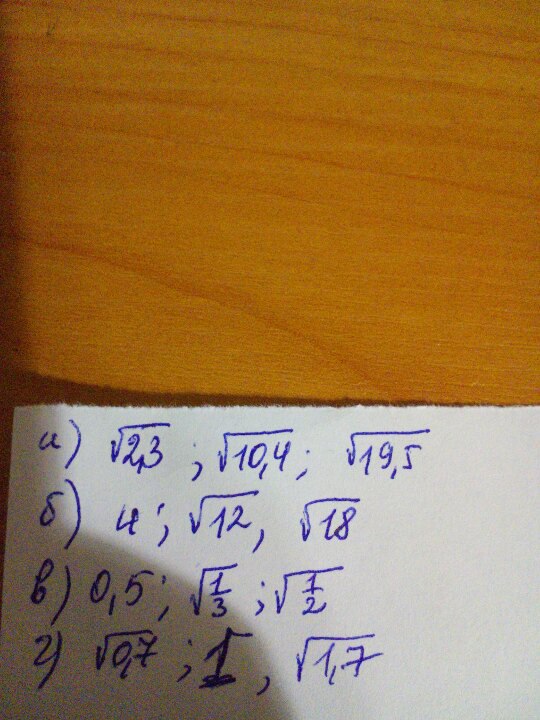 а) √2,3 ; √10,4 ; √19,5
б) 4 ; √12 , √18
в) 0,5 ; √1/3 ; √1/2
г) √0,7 ; 1 , √1,7